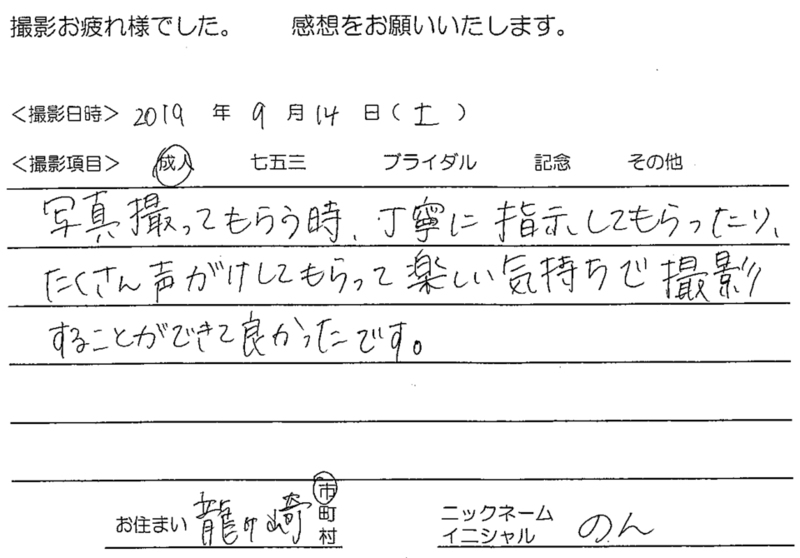 撮影お疲れ様でした。　感想をお願いいたします。
＜撮影日時＞ 2019 年 9 月 14 日（土）
＜撮影項目＞ 成人 七五三 ブライダル 記念 その他
写真撮ってもらう時、丁寧に指示してもらったり、
たくさん声がけしてもらって楽しい気持ちで撮影
することができて良かったです。
お住まい 龍ケ崎 市町村 ニックネーム イニシャル のん